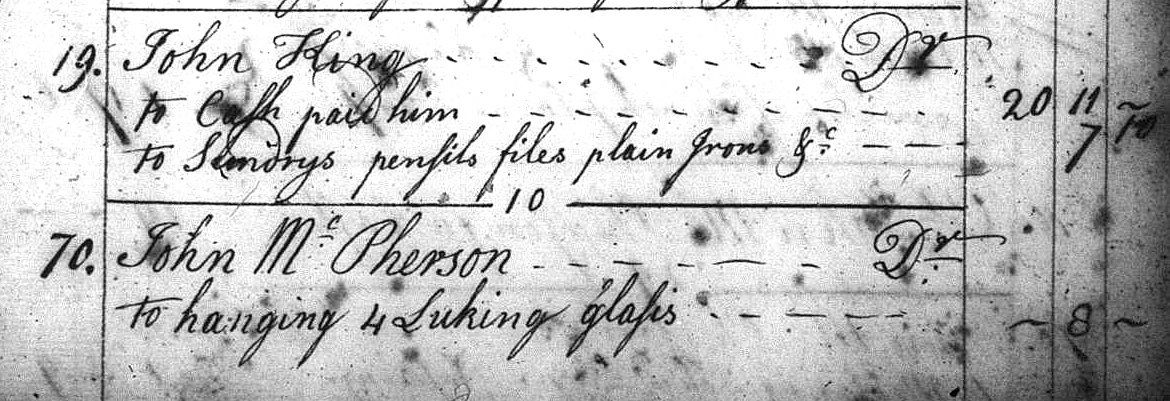 19. John King - - - - - - - - - Dr.
to Cash paid him - - - - - - - - - 20 11 ~
to Sundrys pensils files plain Irons &c. - - - 7 10
10
70. John Mc. Pherson - - - - - - Dr.
to hanging 4 Luking glasis - - - - - ~ 8 ~